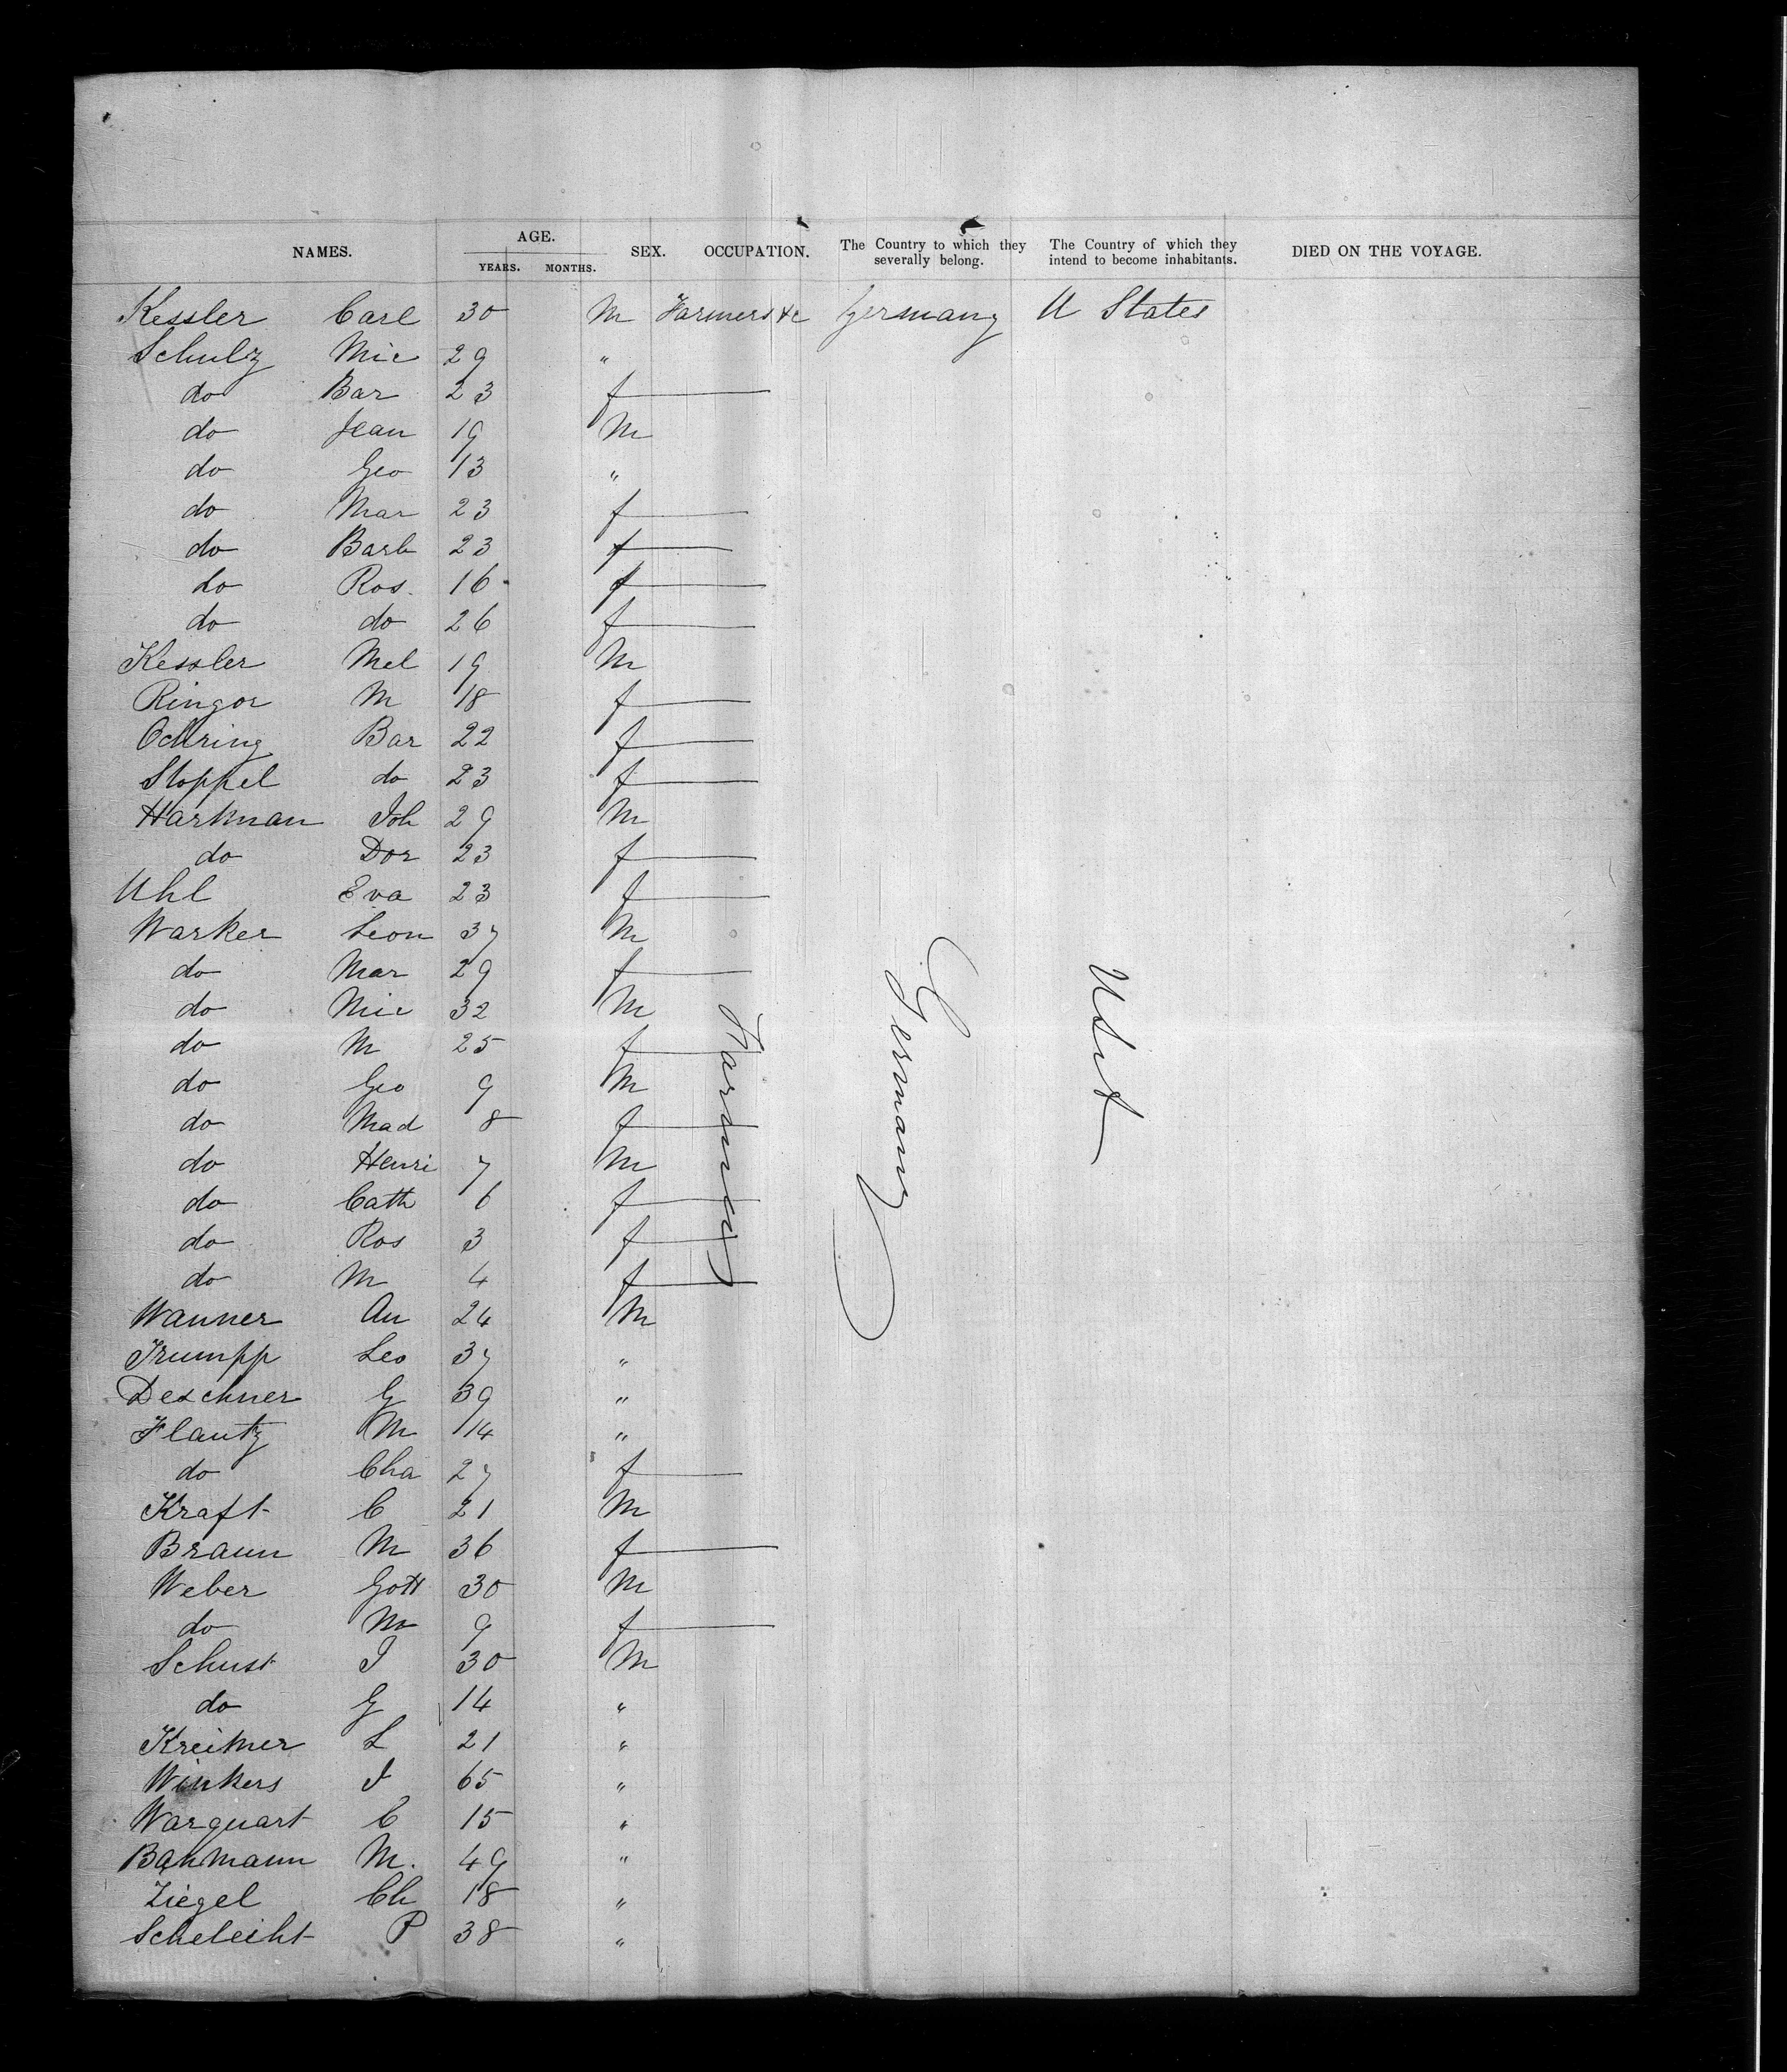 NAMES. AGE. YEARS. MONTHS. SEX. OCCUPATION. The Country to which they severally belong. The Country of which they intend to become inhabitants. DIED ON THE VOYAGE.
Kessler Carl 30 M Farmers &c Germany U States
Schulz Mic 29 "
do Bar 23 f
do Jean 19 M
do Geo 13 "
do Mar 23 f
do Barb 23 f
do Ros. 16 f
do do 26 f
Kessler Mel 19 M
Ringor M 18 f
Oehring Bar 22 f
Stoppel do 23 f
Harkman Joh 29 M
do Dor 23 f
Uhl Eva 23 f
Warker Leon 37 M
do Mar 29 f
do Mic 32 M
do M 25 f
do Geo 9 M
do Mad 8 f
do Henri 7 M
do Cath 6 f
do Ros 3 f
do M 4 f
Farmers
Germany
USt
Wanner An 24 M
Trumpp Leo 37 "
Deschner G 39 "
Flautz M 14 "
do Cha 27 f
Kraft C 21 M
Braun M 36 f
Weber Gott 30 M
do M 9 f
Schust J 30 M
do G 14 "
Kreimer L 21 "
Winkers J 65 "
Warquart C 15 "
Bahmann M. 49 "
Ziegel Ch 18 "
Scheleiht P 38 "